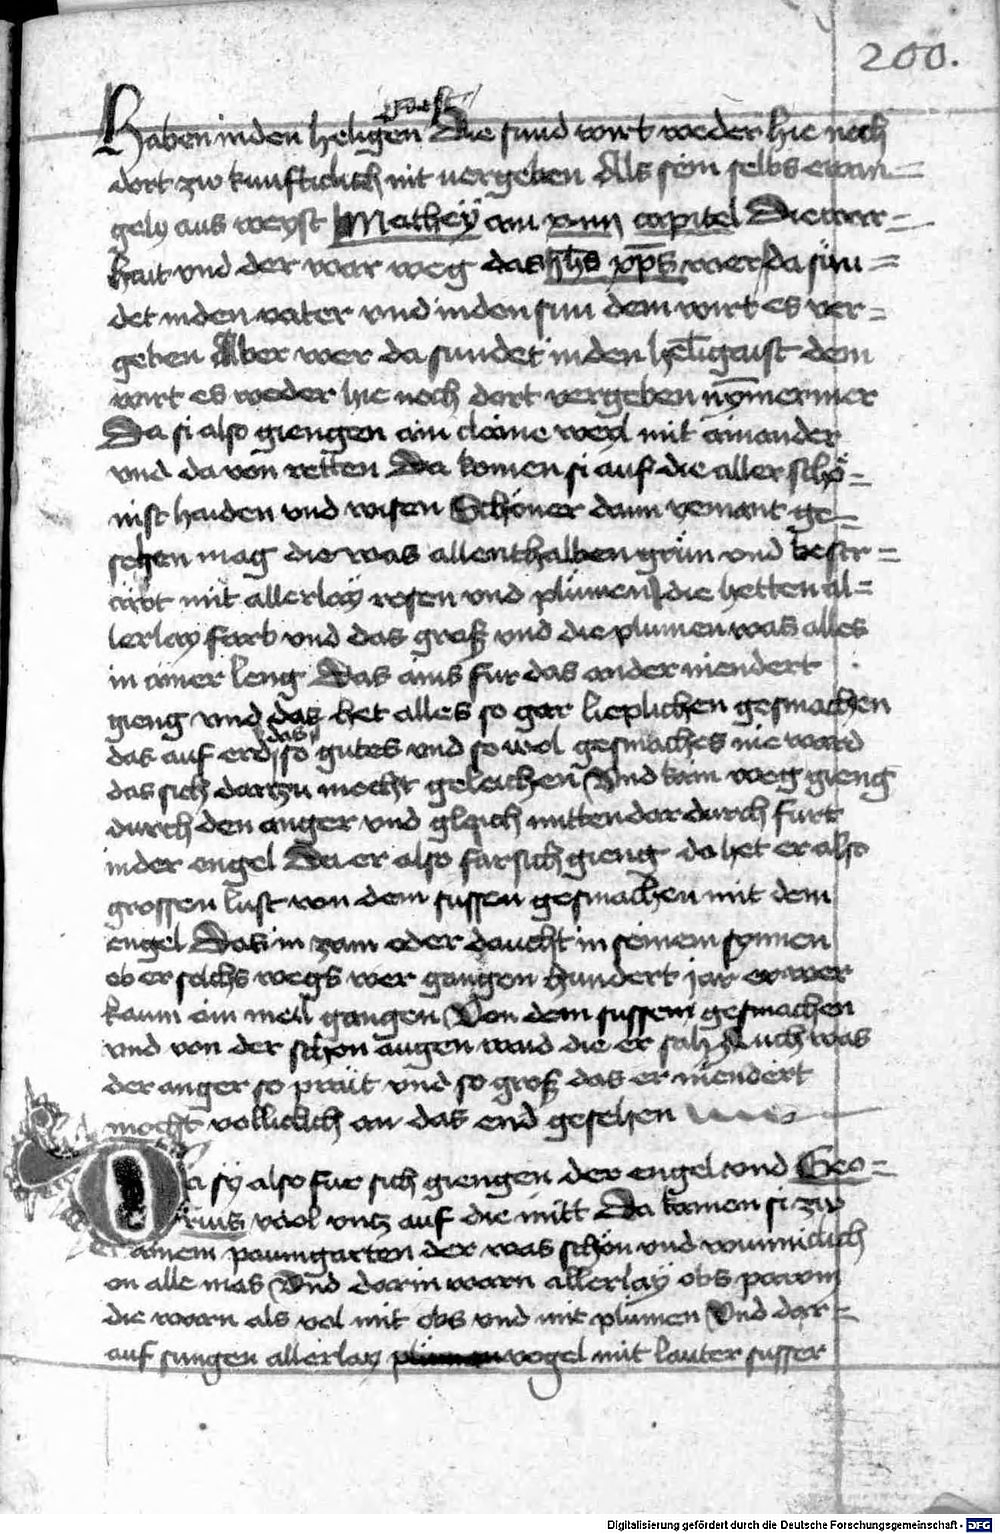 200.
gaist
Haben in den heligen Die sund wirt weder hie noch
dort zw kunfticklich nit vergeben Als sein selbs ewan=
gely aus weyst Mathey am xviij capitel Die war=
hait vnd der war weg das ihs xps wer da sün=
det in den vater vnd in den sun dem wirt es ver=
geben Aber wer da sundet in den heligaist dem
wirt es weder hie noch dort vergeben nymermer
Da si also giengen ain claine weyl mit ainander
vnd da von retten Da komen si auf die aller schö=
nist haiden vnd wisen Schöner dann yemant ge=
sehen mag die was allenthalben grün vnd bestr=
äbt mit allerlay rosen vnd plumen die hetten al=
lerlay farb vnd das graß vnd die plumen was alles
in ainer leng Das ains fur das ander niendert
gieng vnd das het alles so gar lieplichen gesmachen
das
das auf erd so gutes vnd so wol gesmaches nie ward
das sich darzu mocht geleichen Vnd kain weg gieng
durch den anger vnd gleich mitten dar durch furt
in der engel Da er also fur sich gieng do het er also
grossen lust von dem sussen gesmachen mit dem
engel Das in zam oder daucht in seinem synnen
ob er solchs wegs wer gangen hundert jar er wer
kaum ain meil gangen Von dem sussem gesmachen
vnd von der schon augen waid die er sah Auch was
der anger so prait vnd so groß das er niendert
mocht vollicklich an das end gesehen
Da sy also fur sich giengen der engel vnd Geo=
rius wol vntz auf die mitt Da komen si zw
ainem paumgarten der was schön vnd wunnicklich
on alle mas Vnd darin warn allerlay obs paum
die warn als vol mit obs vnd mit plumen Vnd dar=
auf sungen allerlay vogel mit lauter susser
Digitalisierung gefördert durch die Deutsche Forschungsgemeinschaft - DFG